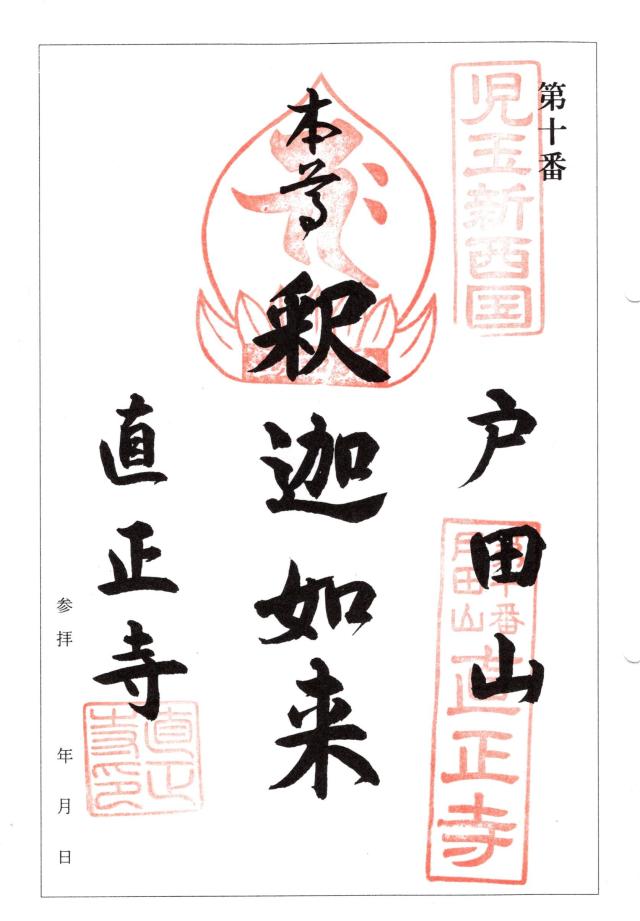 第十番
児玉新西国
戸田山
第十番
戸田山
直正寺
本尊
釈迦如来
直正寺
直正寺印
参拝 年 月 日